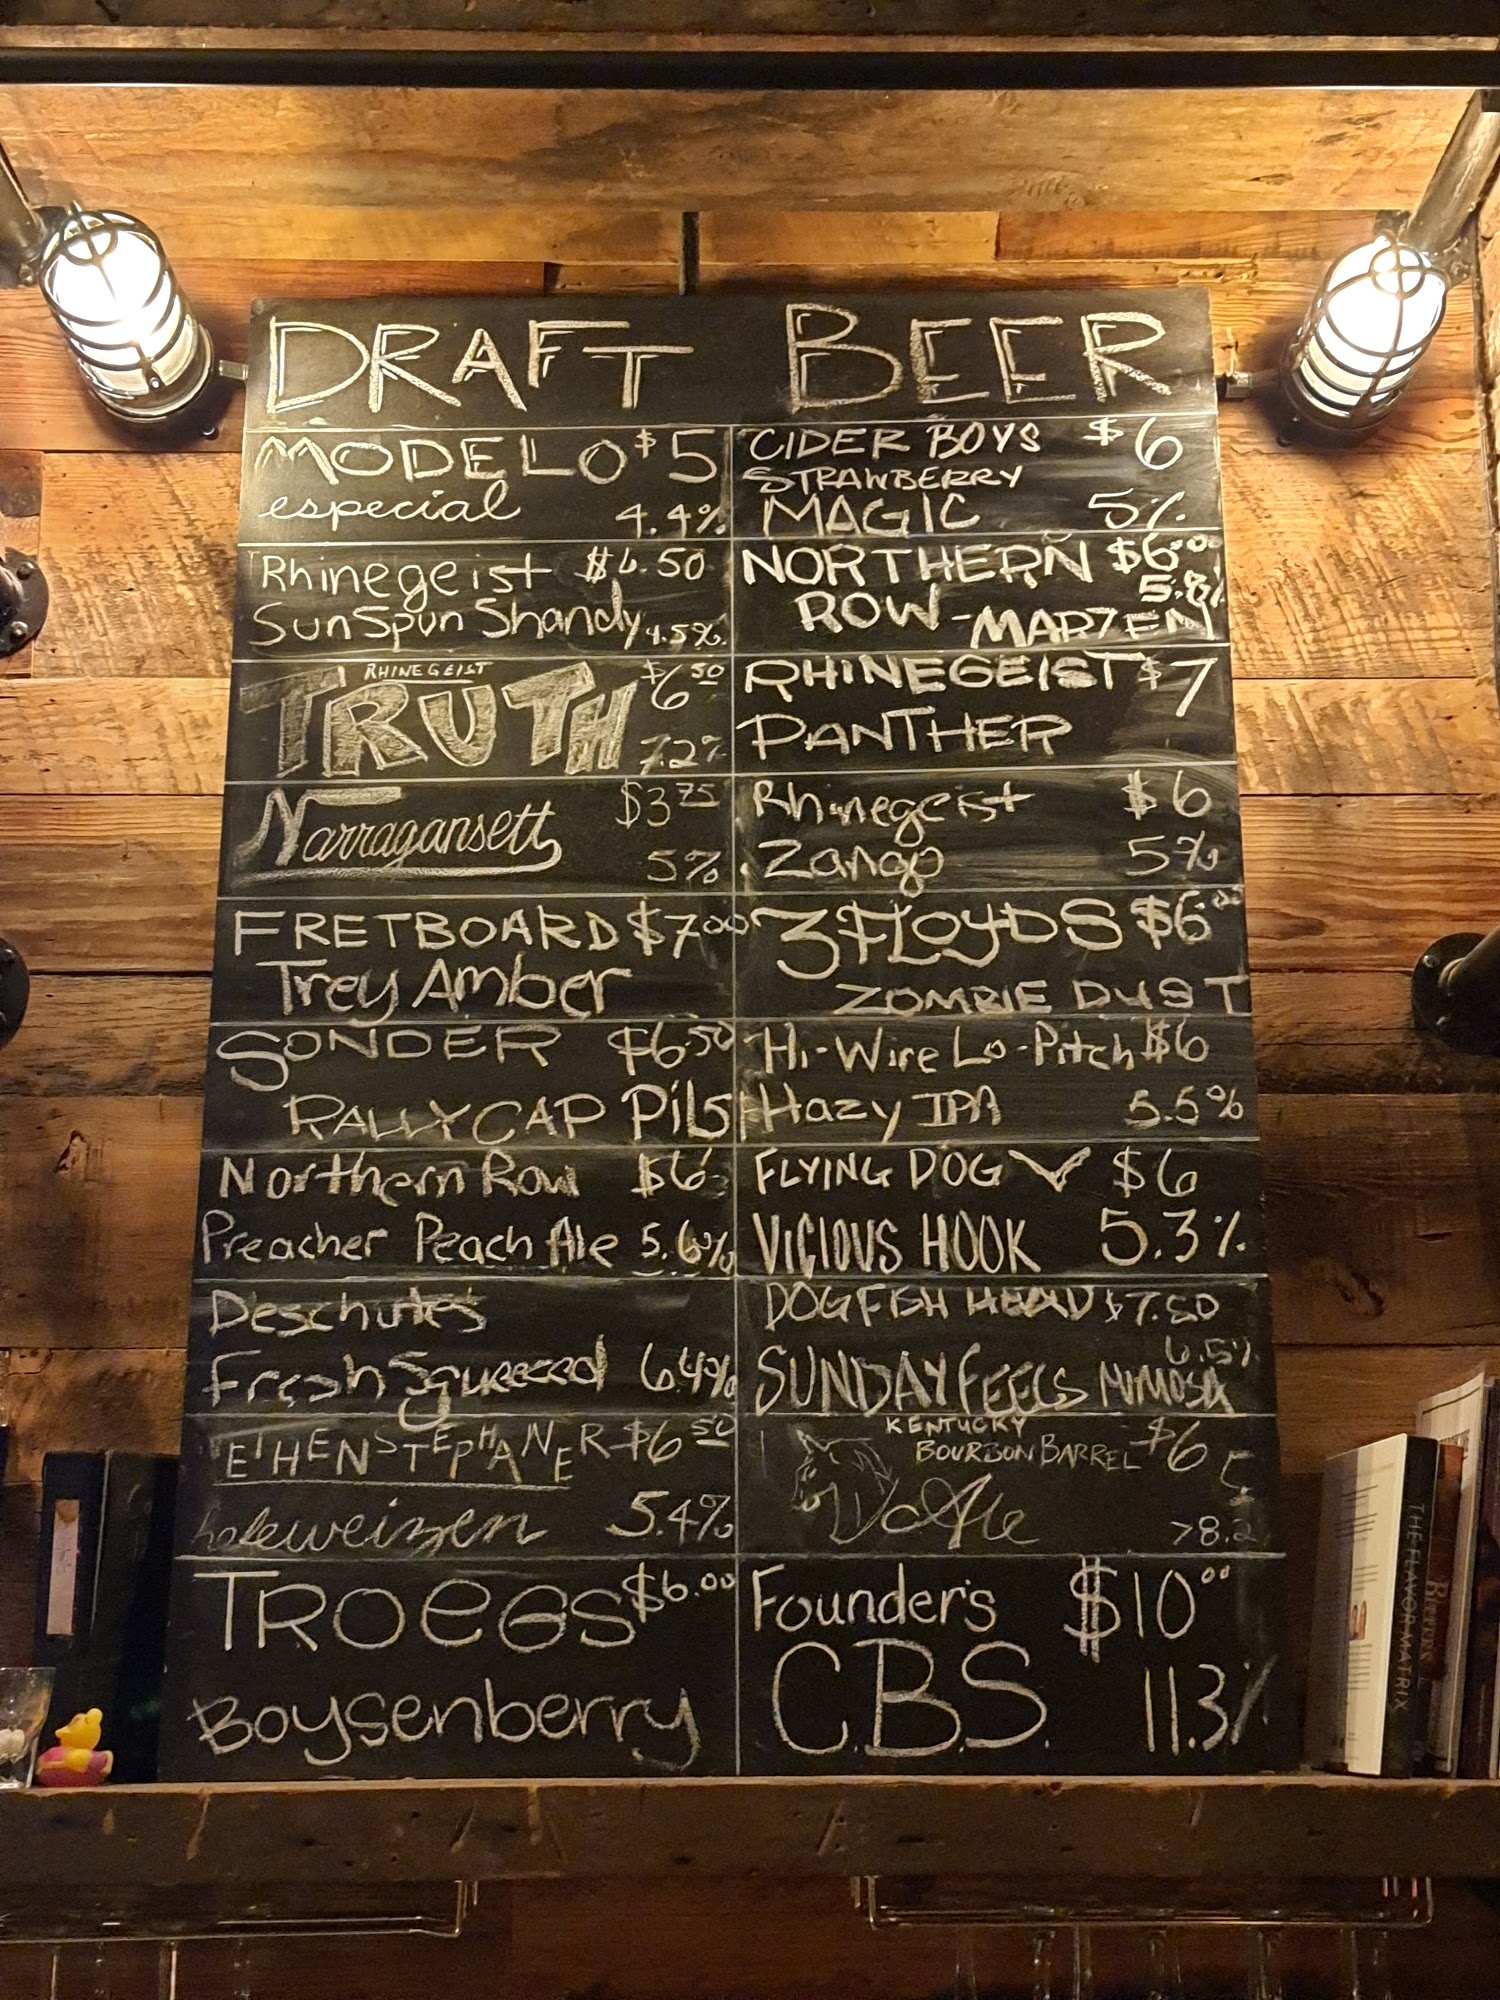 DRAFT BEER
MODELO $5
especial 4.4%
Rhinegeist $6.50
SunSpun Shandy 4.5%
RHINEGEIST
TRUTH $6 50
7.2%
Narragansett $3 75
5%
FRETBOARD $7.00
Trey Amber
SONDER $6.50
RALLYCAP PilS
Northern Row $6
Preacher Peach Ale 5.6%
Deschutes
Fresh Squeezed 6.4%
WEIHENSTEPHANER $6 50
hefeweizen 5.4%
TROEGS $6.00
Boysenberry
CIDER BOYS $6
STRAWBERRY
MAGIC 5%
NORTHERN $6.00
5.8%
ROW - MARZEN
RHINEGEIST $7
PANTHER
Rhinegeist $6
Zango 5%
3 FLOYDS $6.00
ZOMBIE DUST
Hi-Wire Lo-Pitch $6
Hazy IPA 5.5%
FLYING DOG $6
VICIOUS HOOK 5.3%
DOGFISH HEAD $7.50
6.5%
SUNDAY FEELS MIMOSA
KENTUCKY
BOURBON BARREL $6
Ale >8.2
Founders $10.00
C.B.S. 11.3%
THE FLAVOR MATRIX